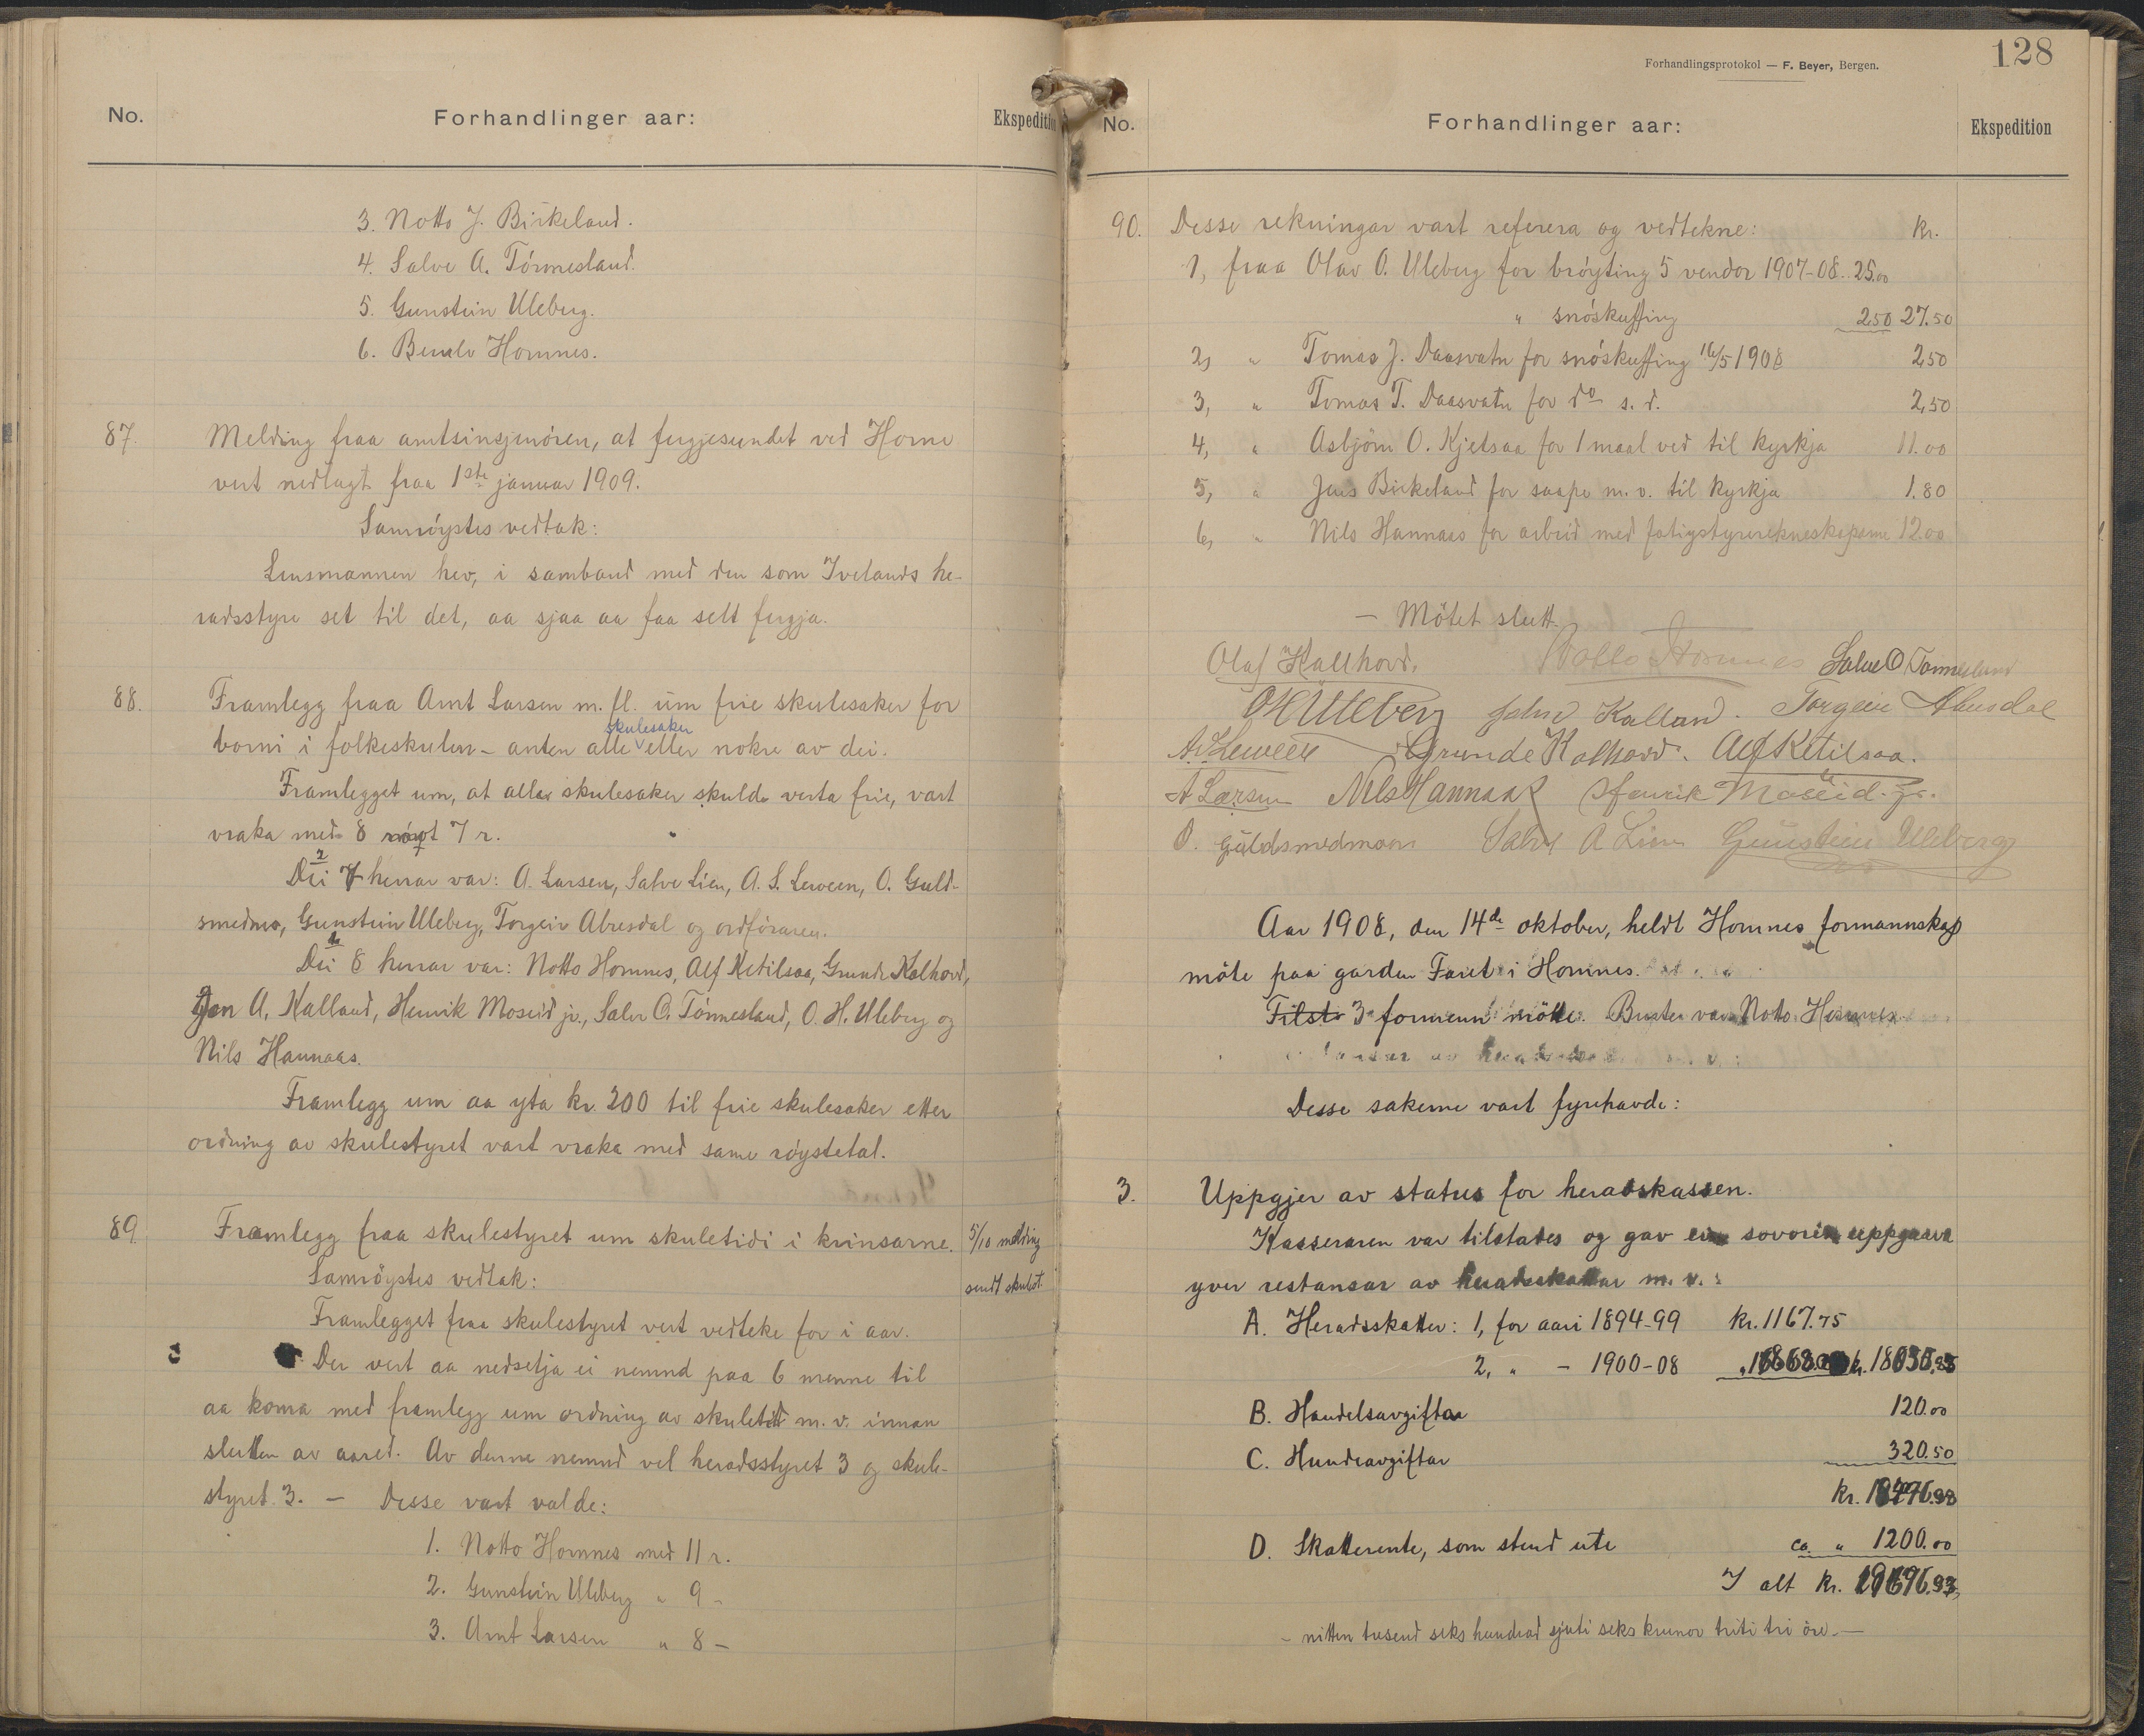 No. Forhandlinger aar: Ekspedition
3. Notto J. Birkeland.
4. Salve A. Tónnesland.
5. Gunstein Uleberg.
6. Berulv Hornnes.
87. Melding fraa amtsinsjenóren, at fergjesundet ved Horne
vert nedlagt fraa 1ste januar 1909.
Samróystes vedtak:
Lensmannen hev, i samband med den som Ivelands he-
radsstyre set til det, aa sjaa aa faa selt fergja.
88. Framlegg fraa Arnt Larsen m. fl. um frie skulesaker for
borni i folkeskulen - anten alle skulesaker eller nokre av dei.
Framlegget um, at alle skulesaker skulde verta frie, vart
vraka med 8 róyst 7 r.
Dei 7 herrar var: A. Larsen, Salve Lien, A. S. Leween, O. Guld-
smedmo, Gunstein Uleberg, Torgeir Abusdal og ordfóraren.
Dei 8 herrar var: Notto Hornnes, Alf Ketilsaa, Grunde Kalhovd,
Jon A. Kalland, Henrik Moseid jr., Salve O. Tónnesland, O. H. Uleberg og
Nils Hannaas.
Framlegg um aa yta kr. 200 til frie skulesaker etter
ordning av skulestyret vart vraka med same róystetal.
89. Framlegg fraa skulestyret um skuletidi i krinsarne. 5/10 melding
Samróystes vedtak: sendt skulest.
Framlegget fraa skulestyret vert vedteke for i aar.
Der vert aa nedsetja ei nemnd paa 6 menne til
aa koma med framlegg um ordning av skuletid m. v. innan
slutten av aaret. Av denne nemnd vel heradsstyret 3 og skule-
styret 3. — Desse vart valde:
1. Notto Hornnes med 11 r.
2. Gunstein Uleberg " 9 -
3. Arnt Larsen " 8 -
Forhandlingsprotokol — F. Beyer, Bergen.
128
No. Forhandlinger aar: Ekspedition
90. Desse rekningar vart referera og vedtekne: Kr.
1, fraa Olav O. Uleberg for bróyting 5 vendor 1907-08.. 25.00
" snóskuffing 2.50 27.50
2, " Tomas J. Daasvatn for snóskuffing 16/5 1908 2,50
3, " Tomas T. Daasvatn for do s. d. 2,50
4, " Asbjörn O. Kjetsaa for 1 maal ved til kyrkja 11.00
5, " Jens Birkeland for saape m. v. til kyrkja 1.80
6, " Nils Hannaas for arbeid med fatigstyrerekneskaperne 12.00
— Mötet slutt.
Olaf Kallhovd. Notto Hornnes Salve O Tonnesland
O H Uleberg John Kalland. Torgeir Abusdal
A. S. Leween Grunde Kalhovd. Alf Ketilsaa.
A Larsen Nils Hannaas Henrik Moseid. jr.
O. Guldsmedmoen Salve A Lien Gunstein Uleberg
Aar 1908, den 14de oktober, heldt Hornnes formannskap
möte paa garden Faret i Hornnes.
Tilst 3 formenn mötte. Burte var Notto Hornnes.
Desse sakerne vart fyrehavde:
3. Uppgjer av status for heradskassen.
Kasseraren var tilstades og gav ein sovorin uppgaava
yver restansar av heradsskattar m. v.:
A. Heradsskatter: 1, for aari 1894-99 Kr. 1167.75
2, " - 1900-08
B. Handelsavgiftar 120.00
C. Hundeavgiftar 320.50
D. Skatterente, som stend ute ca. " 1200.00
I alt kr. 19676.93
- nitten tusend seks hundrad sjuti seks krunor triti tri öre. —